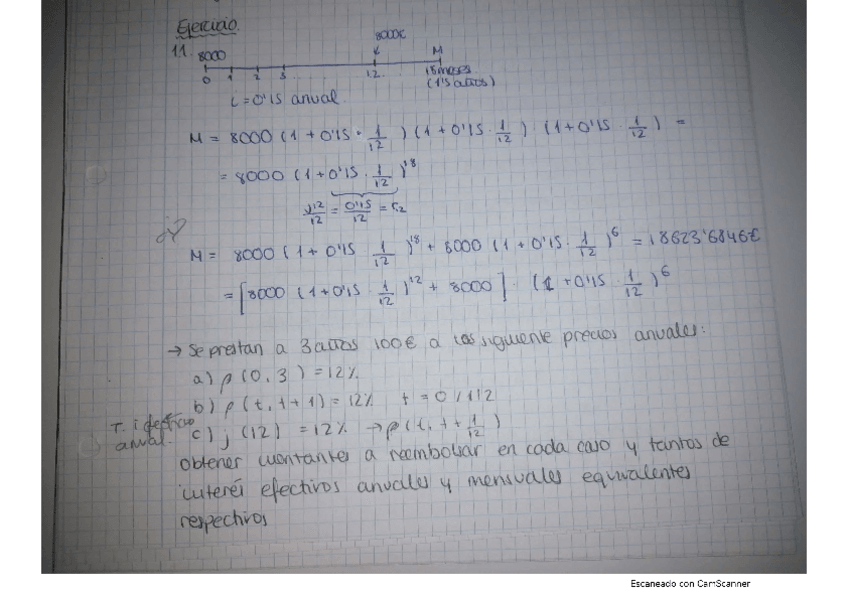 Ejercicio.
11. 8000 8000€ M
0 1 2 3 12 18 meses
(1'5 años)
i = 0'15 anual
M = 8000 (1 + 0'15 · 1/12) (1 + 0'15 · 1/12) (1 + 0'15 · 1/12) =
= 8000 (1 + 0'15 · 1/12)^18
12/12 = 0'15/12 =
M = 8000 (1 + 0'15 1/12)^18 + 8000 (1 + 0'15 · 1/12)^6 = 18623'6846€
= [8000 (1 + 0'15 · 1/12)^12 + 8000] · (1 + 0'15 · 1/12)^6
→ Se prestan a 3 años 100€ a los siguiente precios anuales:
a) ρ (0, 3) = 12%
b) ρ (t, t + 1) = 12% t = 0, 1, 2
T. anual. c) j (12) = 12% → ρ (t, t + 1/12)
obtener cuantantes a reembolsar en cada caso y tantos de
interés efectivos anuales y mensuales equivalentes
respectivos
Escaneado con CamScanner